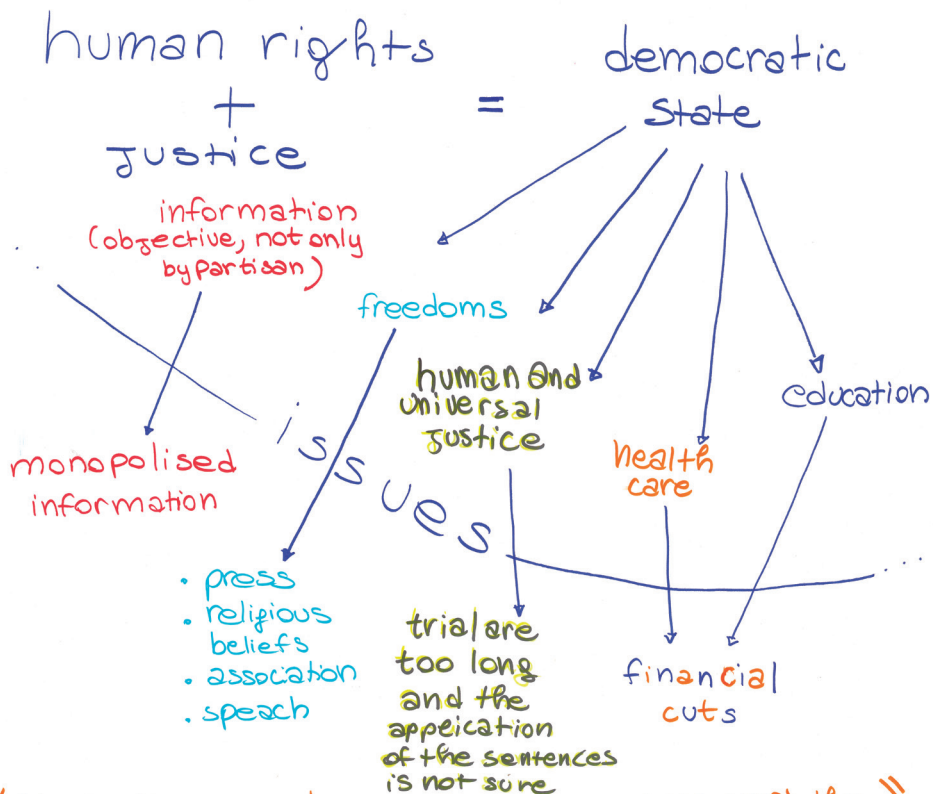 human rights
+
Justice
=
democratic
state
information
(objective, not only
by partisan)
freedoms
human and
universal
Justice
health
care
education
issues
monopolised
information
. press
. religious
beliefs
. association
. speach
trial are
too long
and the
appeication
of the sentences
is not sure
financial
cuts